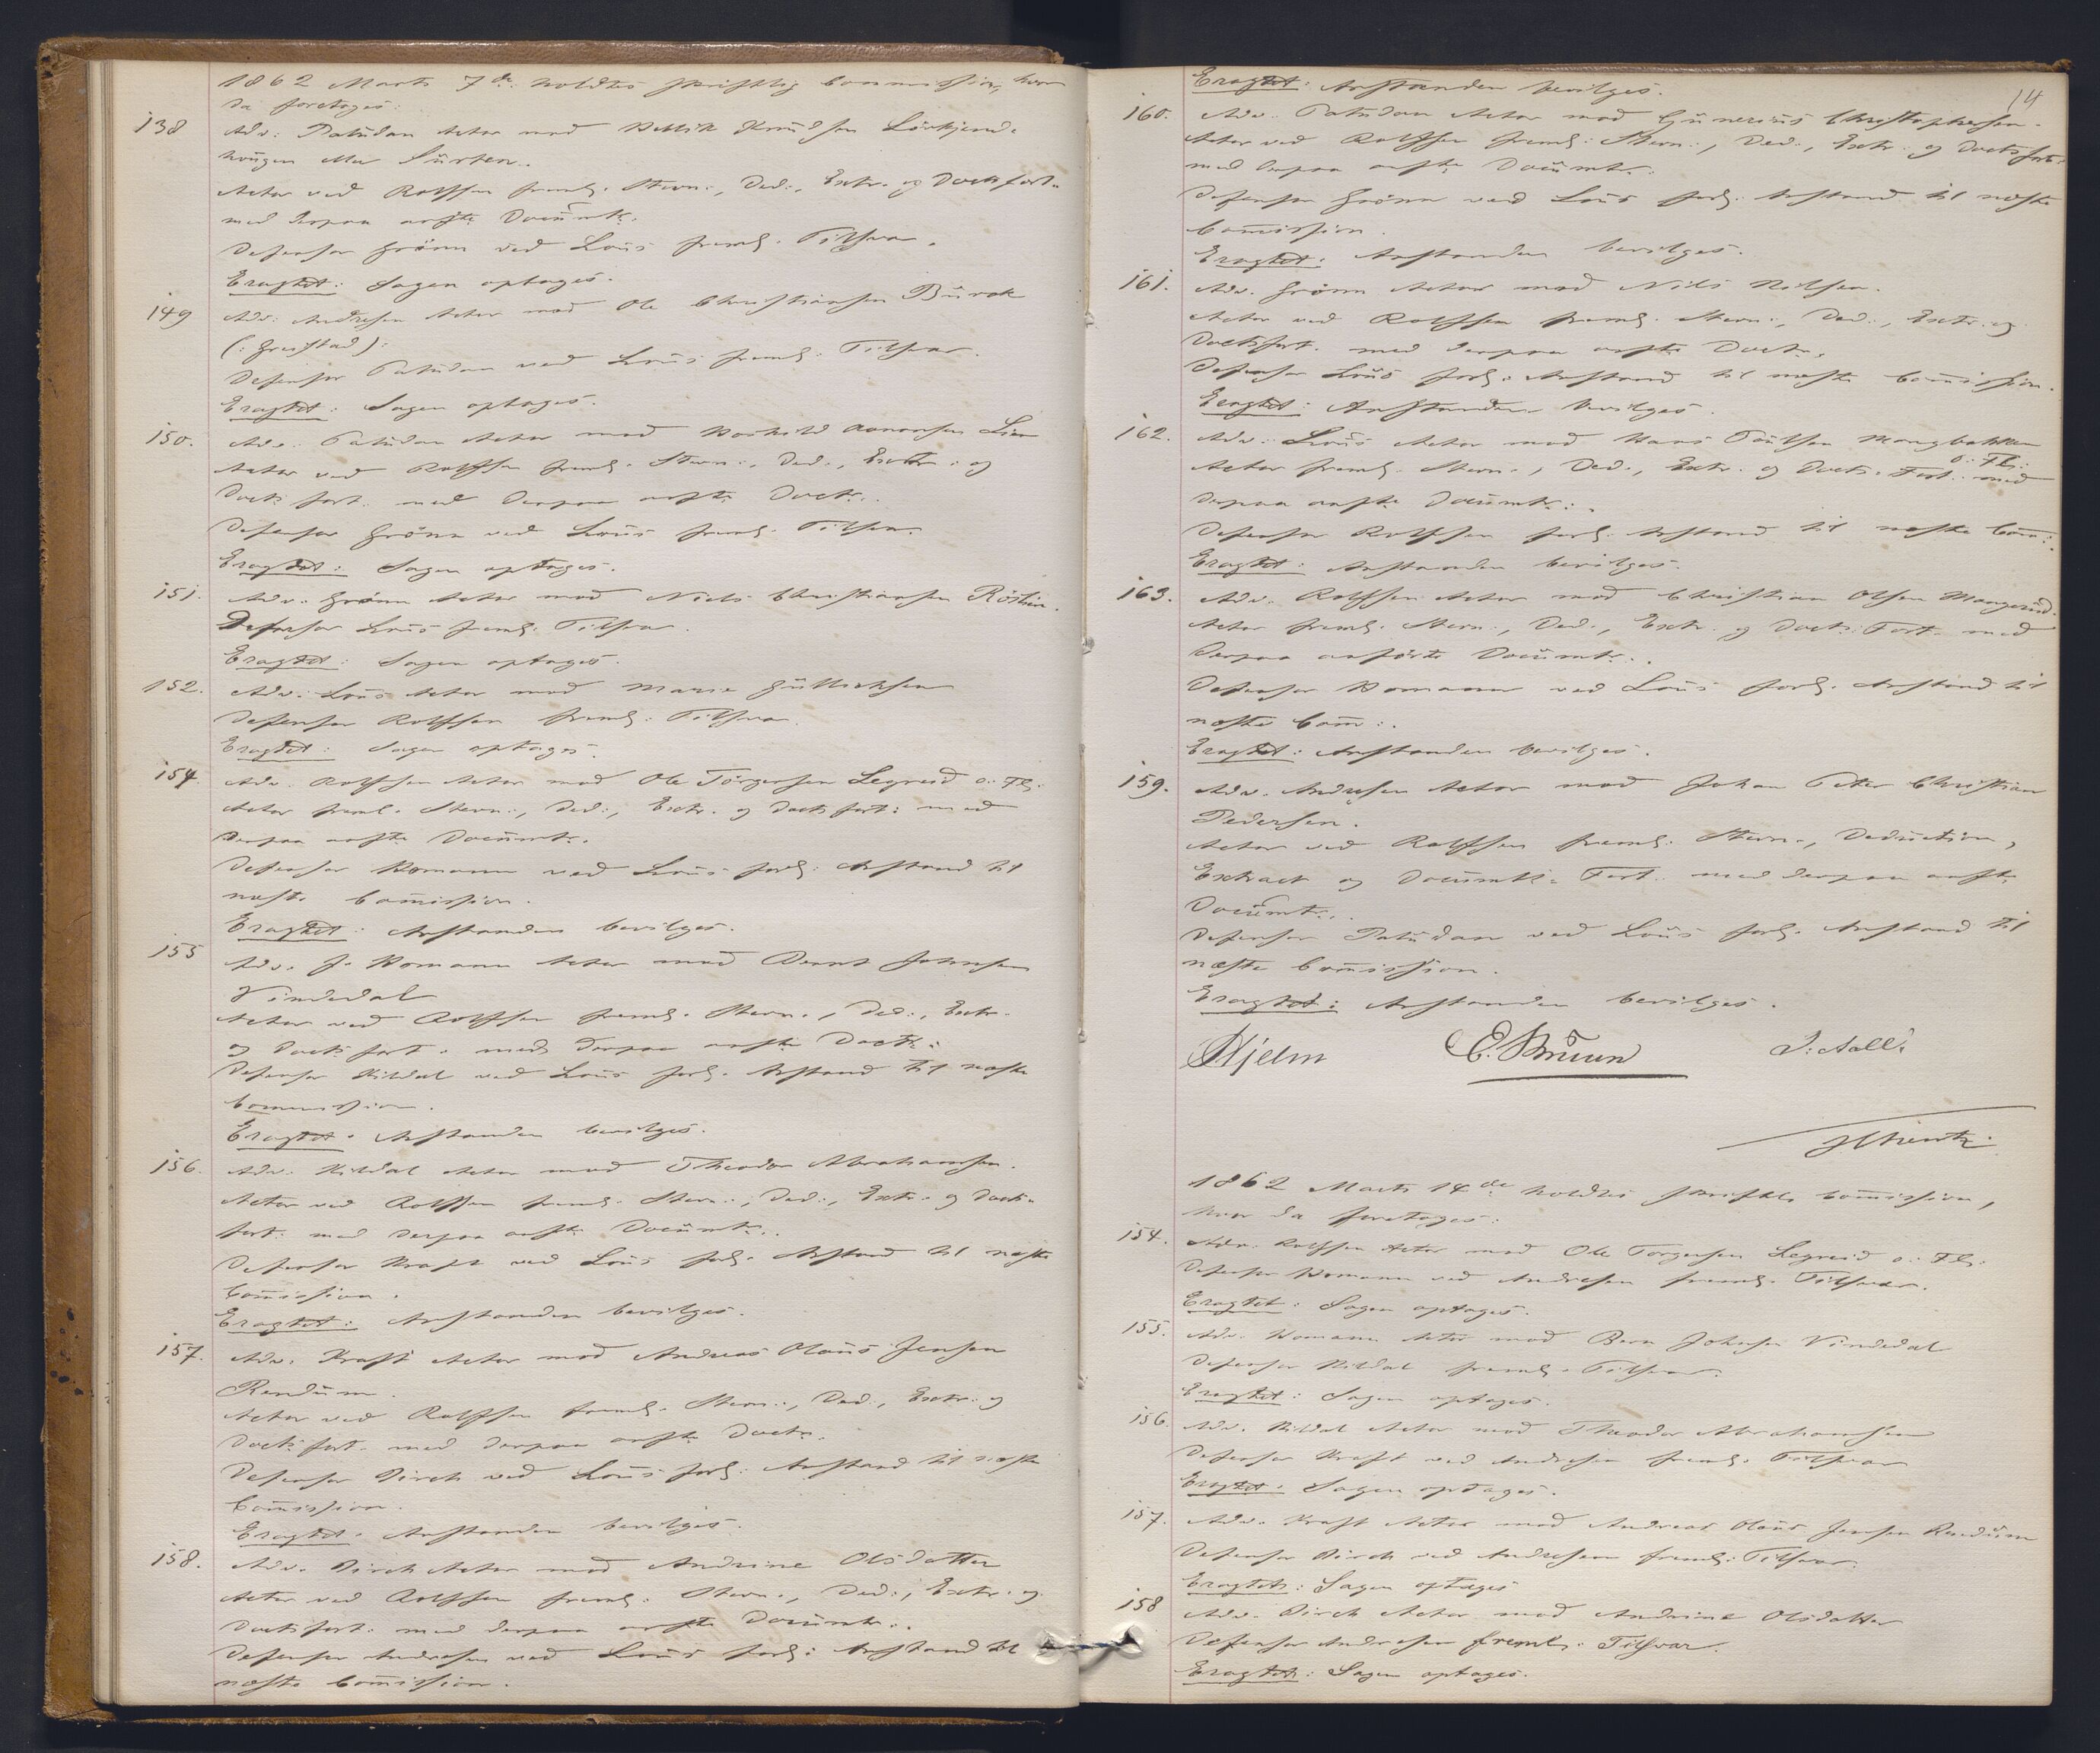 1862 Marts 7de holdtes skriftlig Commission, hvor
da foretoges:
138 Adv: Paludan Actor mod Knudsen
haugen eller Surten.
Actor ved Rolfsen freml. Stevn:, Ded:, Extr. og Docts fort.
med derpaa anfte Documtr.
Defensor Grönn ved Lous freml. Tilsvar.
Eragtet: Sagen optages.
149 Adv: Andresen Actor mod Ole Christiansen Burak
(: Grustad):
Defensor Paludan ved Lous freml: Tilsvar.
Eragtet: Sagen optages.
150. Adv. Paludan Actor mod Aanonsen Lien
Actor ved Rolfsen freml. Stevn:, Ded., Extr: og
Docts fort. med derpaa anfte Doctr.
Defensor Grönn ved Lous freml. Tilsvar.
Eragtet: Sagen optages.
151. Adv. Grönn Actor mod Niels Christiansen
Defensor Lous freml. Tilsvar.
Eragtet: Sagen optages.
152. Adv. Lous Actor mod Marie Gulliksen
Defensor Rolfsen freml: Tilsvar.
Eragtet: Sagen optages.
154. Adv. Rolfsen Actor mod Ole Törgersen Legreid o: Fl:
Actor freml. Stevn:, Ded:, Extr. og Docts fort: med
derpaa anfte Documtr.
Defensor Homann ved Lous forl: Anstand til
næste Commission.
Eragtet: Anstanden bevilges.
155 Adv. J. Homann Actor mod Bernt Johnsen
Vindedal
Actor ved Rolfsen freml. Stevn., Ded:, Extr.
og Docts fort. med derpaa anfte Doctr:
Defensor Kildal ved Lous forl. Anstand til næste
Commission.
Eragtet. Anstanden bevilges.
156. Adv. Kildal Actor mod Theodor Abrahamsen.
Actor ved Rolfsen freml. Stevn:, Ded:, Extr. og Docts
fort: med derpaa anfte Documtr.
Defensor Kraft ved Lous forl. Anstand til næste
Commission.
Eragtet: Anstanden bevilges.
157. Adv. Kraft Actor mod Andreas Olaus Jensen
Rendum.
Actor ved Rolfsen freml. Stevn:, Ded:, Extr: og
Docts fort. med derpaa anfte Doctr.
Defensor Birch ved Lous forl: Anstand til næste
Commission.
Eragtet. Anstanden bevilges.
158. Adv. Birch Actor mod Andrine Olsdatter
Actor ved Rolfsen freml: Stevn., Ded:, Extr. og
Docts fort: med derpaa anfte Documtr.
Defensor Andresen ved Lous forl: Anstand til
næste Commission.
14
Eragtet: Anstanden bevilges.
160. Adv. Paludan Actor mod Gunerius Christophersen.
Actor ved Rolfsen freml: Stevn:, Ded:, Extr. og Docts fort:
med derpaa anfte Documtr.
Defensor Grönn ved Lous forl: Anstand til næste
Commission.
Eragtet: Anstanden bevilges.
161. Adv. Grönn Actor mod Nils Nilsen.
Actor ved Rolfsen freml. Stevn:, Ded:, Extr. og
Docts fort. med derpaa anfte Doctr.
Defensor Lous forl: Anstand til næste Commission.
Eragtet: Anstanden bevilges.
162. Adv. Lous Actor mod Hans Poulsen Mangbakken
o: Fl:
Actor freml. Stevn:, Ded., Extr. og Docts. Fort: med
derpaa anfte Documtr:.
Defensor Rolfsen forl. Anstand til næste Com:.
Eragtet: Anstanden bevilges.
163. Adv. Rolfsen Actor mod Christian Olsen Mangerud.
Actor freml. Stevn:, Ded:, Extr. og Docts: Fort. med
derpaa anförte Documtr.
Defensor Homann ved Lous forl. Anstand til
næste Com:.
Eragtet: Anstanden bevilges.
159. Adv. Andresen Actor mod Johan Peter Christian
Pedersen.
Actor ved Rolfsen freml: Stevn:, Deduction,
Extract og Documts. Fort: med derpaa anfte
Documtr.
Defensor Paludan ved Lous forl. Anstand til
næste Commission.
Eragtet: Anstanden bevilges.
Hjelm E. Bruun J: Aall.
1862 Marts 14de holdtes skriftl. Commission,
hvor da foretoges:
154. Adv. Rolfsen Actor mod Ole Torgersen Legreid o: Fl:
Defensor Homann ved Andresen freml. Tilsvar.
Eragtet: Sagen optages.
155. Adv. Homann Actor mod Bern Johnsen Vindedal
Defensor Kildal freml. Tilsvar.
Eragtet: Sagen optages.
156. Adv. Kildal Actor mod Theodor Abrahamsen
Defensor Kraft ved Andresen freml. Tilsvar
Eragtet. Sagen optages.
157. Adv. Kraft Actor mod Andreas Olaus Jensen Rendum
Defensor Birch ved Andresen freml: Tilsvar.
Eragtet: Sagen optages
158 Adv. Birch Actor mod Andrine Olsdatter
Defensor Andresen freml: Tilsvar.
Eragtet: Sagen optages.